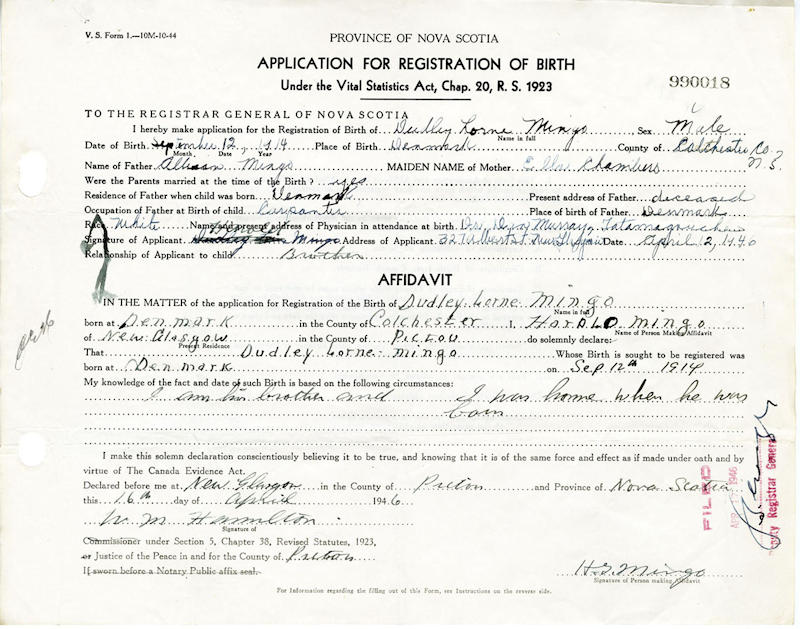 V. S. Form 1.—10M-10-44
PROVINCE OF NOVA SCOTIA
APPLICATION FOR REGISTRATION OF BIRTH
Under the Vital Statistics Act, Chap. 20, R. S. 1923
990018
TO THE REGISTRAR GENERAL OF NOVA SCOTIA
I hereby make application for the Registration of Birth of Dudley Lorne Mingo Sex Male
Name in full
Date of Birth September 12, 1914 Place of Birth Denmark County of Colchester Co. N.S.
Month Date Year
Name of Father Allison Mingo MAIDEN NAME of Mother Ella Chambers
Were the Parents married at the time of the Birth? yes
Residence of Father when child was born Denmark Present address of Father deceased
Occupation of Father at Birth of child Carpanter Place of birth of Father Denmark
Race White Name and present address of Physician in attendance at birth Dr. Dan Murray, Tatamagouche
Signature of Applicant Harold Mingo Address of Applicant New Glasgow Date April 12, 1946
Relationship of Applicant to child Brother
AFFIDAVIT
IN THE MATTER of the application for Registration of the Birth of Dudley Lorne Mingo
Name in full
born at Denmark in the County of Colchester I, Harold Mingo
Name of Person Making Affidavit
of New Glasgow in the County of Pictou do solemnly declare:
Present Residence
That Dudley Lorne Mingo Whose Birth is sought to be registered was
born at Denmark on Sep 12th 1914
My knowledge of the fact and date of such Birth is based on the following circumstances:
I am his brother and I was home when he was
born
I make this solemn declaration conscientiously believing it to be true, and knowing that it is of the same force and effect as if made under oath and by
virtue of The Canada Evidence Act.
Declared before me at New Glasgow in the County of Pictou and Province of Nova Scotia
this 16th day of April 1946
W. M. Hamilton
Signature of
Commissioner under Section 5, Chapter 38, Revised Statutes, 1923,
or Justice of the Peace in and for the County of Pictou
If sworn before a Notary Public affix seal.
H.G. Mingo
Signature of Person making Affidavit
For Information regarding the filling out of this Form, see Instructions on the reverse side.
FILED
APR 1946
Deputy Registrar General